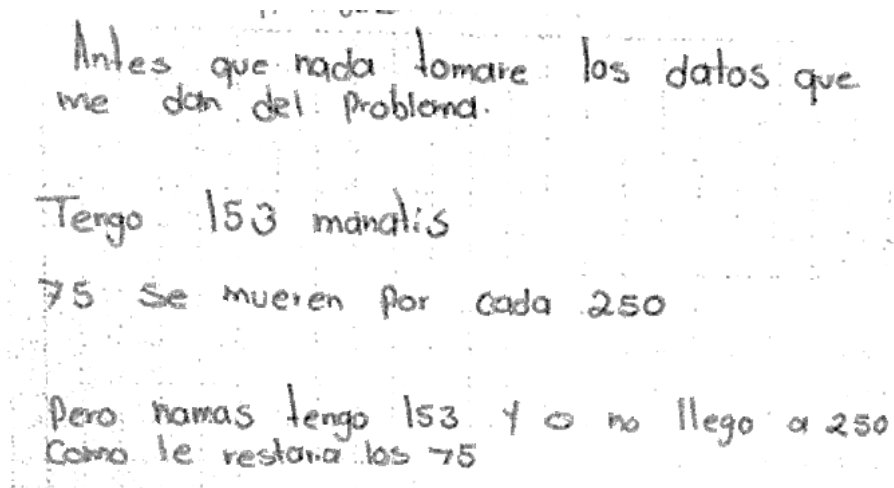 Antes que nada tomare los datos que
me dan del problema.
Tengo 153 manatis
75 se mueren por cada 250
Pero namas tengo 153 y o no llego a 250
Como le restara los 75